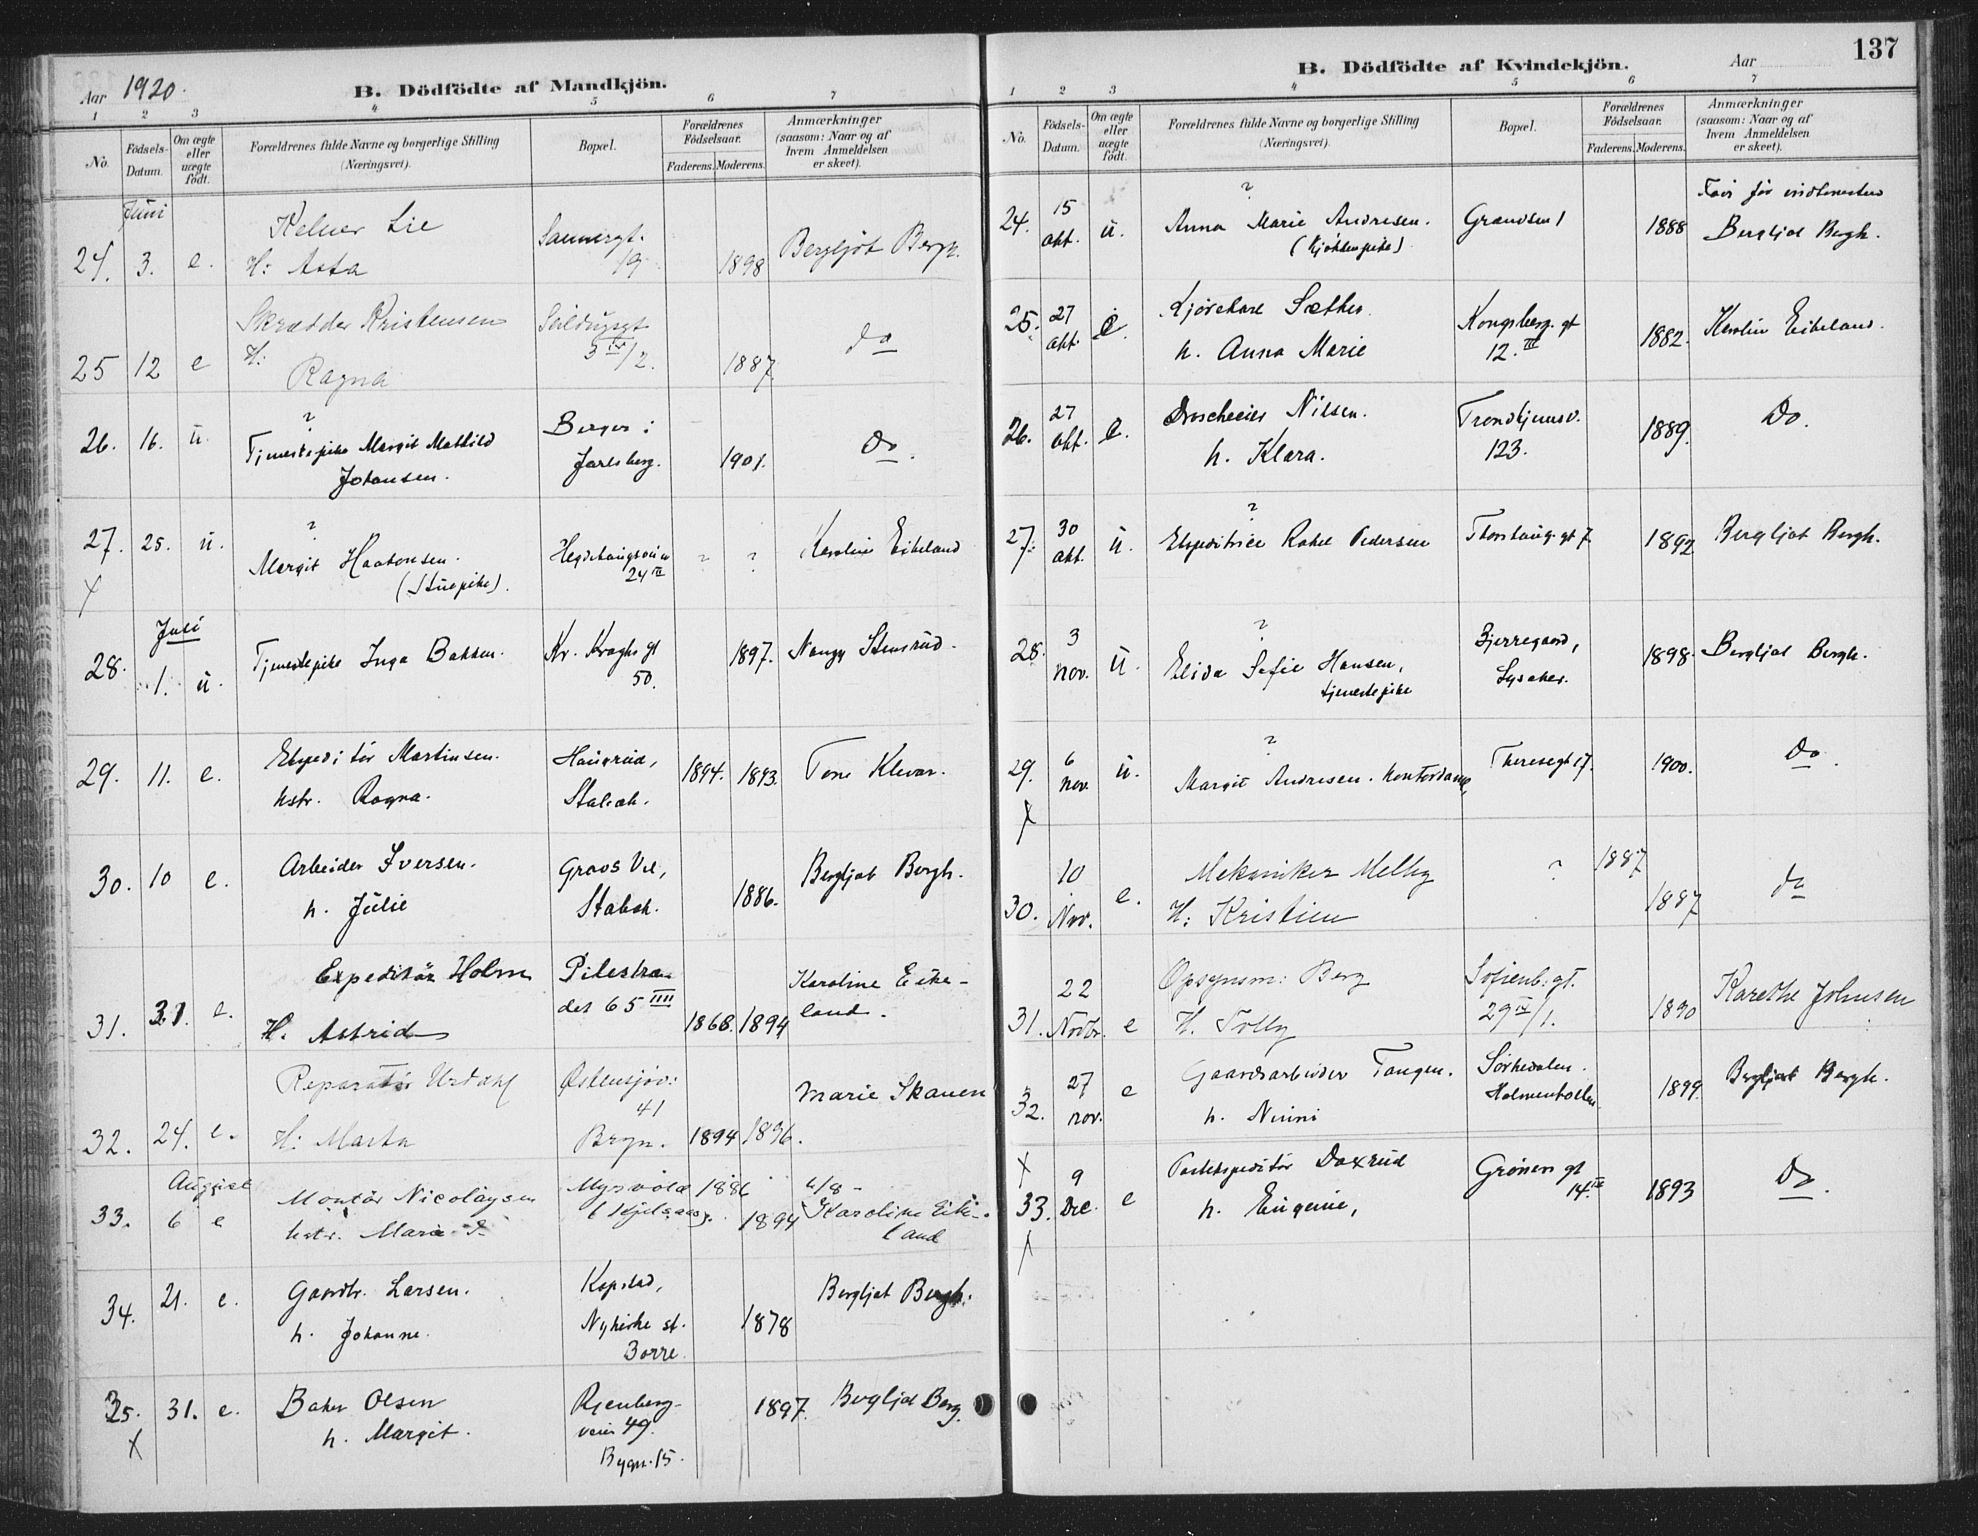 Aar 1920.
B. Dödfödte af Mandkjön.
1 2 3 4 5 6 7
No.
Födsels-
Datum.
Om ægte
eller
uægte
födt.
Forældrenes fulde Navne og borgerlige Stilling
(Næringsvei).
Bopæl.
Forældrenes
Födselsaar.
Faderens. Moderens.
Anmærkninger
(saasom: Naar og af
hvem Anmeldelsen
er skeet).
Juni
24. 3. e. Kelner Lie
H: Asta
Sannergt.
19
1898
Bergljot Bergh.
25 12 e Skrædder Kristensen
H:
Ragna
Seildugsgt
3 IV/2.
1887.
do
26. 16. u. ?
Tjenestepike Margit Mathild
Johansen.
Berger i
Jarlsberg.
1901.
Do.
27. 25. u. ?
Margit Haakonsen.
(Stuepike).
Hegdehaugsveien
24 III
? ?
Karoline Eikeland
X
Juli
28. 1. u. Tjenestepike Inga Bakken.
Kr. Kroghs gt
50.
1897.
Nangy Stensrud.
29. 11. e. Ekspeditør Martinsen.
hstr. Ragna.
Haugrud,
Stabæk.
1894. 1893.
Tone Klevar.
30. 10 e. Arbeider Iversen.
h. Julie
Gravs Vei,
Stabæk.
1886.
Bergljot Bergh.
31. 21. e. Expeditör Holm
H. Astrid
Pilestræ-
det 65 IIII
1868. 1894
Karoline Eike-
land.
32. 24. e. Reparatör Urdahl
H: Marta
Østensjøv:
41
Bryn.
1894 1896.
Marie Skauen
August
33. 6 e Montör Nicolaysen
hstr. Marie
Myrvold
1886
1894
4/8 -
Karoline Eike-
land
34. 21. e. Gaardbr. Larsen.
h. Johanne.
Kopstad,
Nykirke st.
Borre.
1878
Bergljot Bergh.
35. 31. e. Baker Olsen
h. Margit.
Rjenberg-
veien 49.
Bygn. 15.
1897.
Bergljot Berg.
X
B. Dödfödte af Kvindekjön.
Aar
137
1 2 3 4 5 6 7
No.
Födsels-
Datum.
Om ægte
eller
uægte
födt.
Forældrenes fulde Navne og borgerlige Stilling
(Næringsvei).
Bopæl.
Forældrenes
Födselsaar.
Faderens. Moderens.
Anmærkninger
(saasom: Naar og af
hvem Anmeldelsen
er skeet).
24. 15
okt. u. ?
Anna Marie Andresen.
(Kjøkkenpike).
Grændsen 1
1888
før
Bergljot Bergh.
25. 27
okt. e. Kjørekarl Sæther.
h. Anna Marie
Kongsberg. gt
12. III
1882.
Karolin Eikeland.
26. 27
okt. e. Droscheeier Nilsen.
h. Klara.
Trondhjemsv.
123.
1889.
Do.
27. 30
okt. u. ?
Ekspeditrice Rakel Pedersen
Thorshaugs gt 7
1892
Bergljot Bergh.
28. 3
nov. u. ?
Elida Sofie Hansen,
tjenestepike
Bjerregaard,
Lysaker.
1898.
Bergljot Bergh.
29. 6
nov. u. ?
Margit Andresen. Kontordame,
Theresegt 17.
1900.
Do.
X
30. 10
Nov. e. Mekaniker Melby
H: Kristine
?
1887
1887
do
31. 22
Novbr. e Opsynsm: Berg
H. Tolly
Sofienb: gt.
29 IV/1.
1890
Karethe Johnsen
32. 27
nov. e Gaardsarbeider Tangen.
h. Ninni
Sørkedalen.
Holmenkollen.
1899.
Bergljot Bergh.
X
33. 9
Dec. e Postekspeditør Daxrud
h. Eugenie,
Grøners gt
14. IV
1893
Do.
X